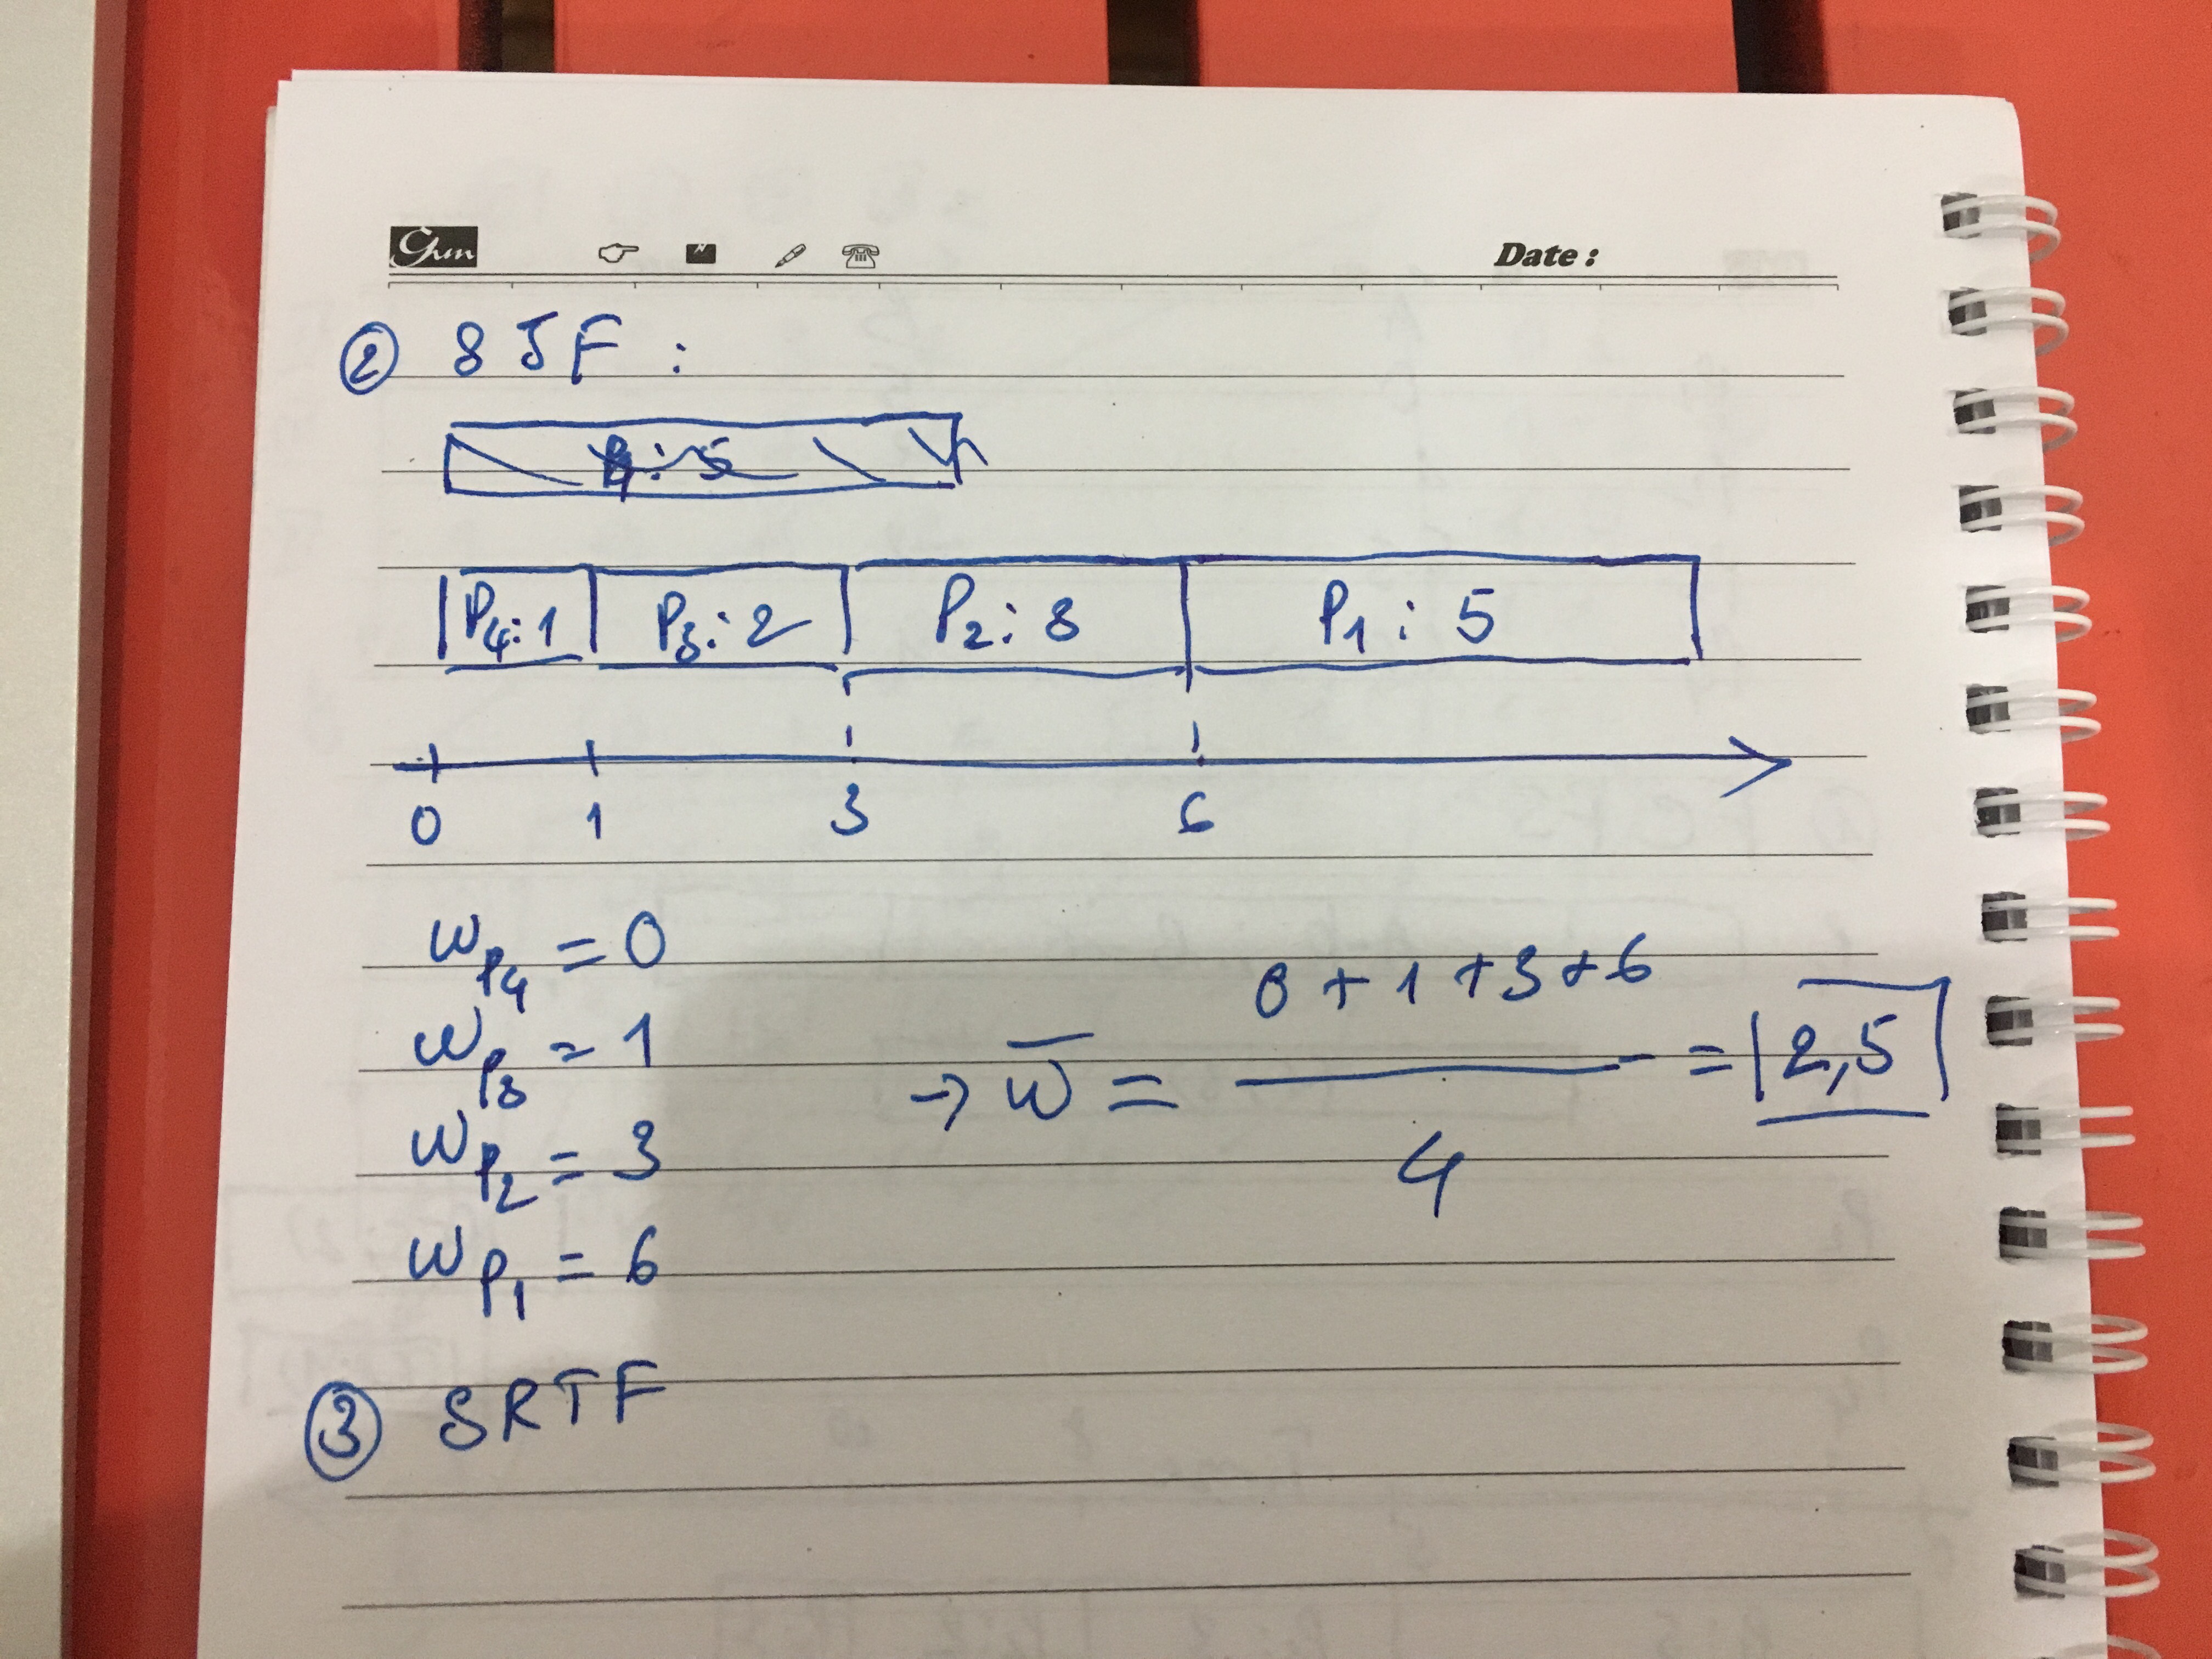 Gum
Date :
② SJF :
P1: 5
P4: 1 P3: 2 P2: 3 P1: 5
0 1 3 6
WP4 = 0
WP3 = 1
WP2 = 3
WP1 = 6
0 + 1 + 3 + 6
→ W̅ = ―――― = 2,5
4
③ SRTF